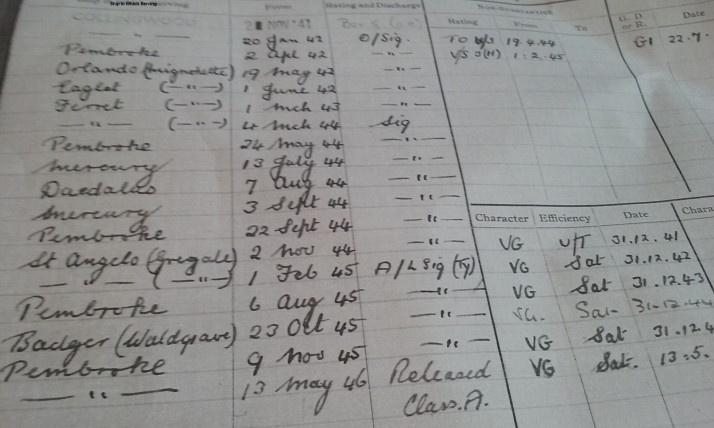 Ship in Which Serving From Rating and Discharge Non-Substantive G. D. or R. Date
Rating From To
COLLINGWOOD 2 NOV '41
20 Jan 42 O/Sig. TO 19.4.44 G1 22.7.
Pembroke 2 Apl 42 —"— V/S 3(H) 1.2.45
Orlando (Mignonette) 19 May 42 —"—
Eaglet (—"—) 1 June 42 —"—
Ferret (—"—) 1 Mch 43 —"—
—"— (—"—) 4 Mch 44 Sig
Pembroke 24 May 44 —"—
Mercury 13 July 44 —"—
Daedalus 7 Aug 44 —"—
Mercury 3 Sept 44 —"—
Pembroke 22 Sept 44 —"—
St Angelo (Gregale) 2 Nov 44 —"—
—"— (—"—) 1 Feb 45 A/L Sig (Ty)
Pembroke 6 Aug 45 —"—
Badger (Waldgrave) 23 Oct 45 —"—
Pembroke 9 Nov 45 —"—
—"— 13 May 46 Released
Class.A.
Character Efficiency Date Chara
VG U/T 31.12.41
VG Sat 31.12.42
VG Sat 31.12.43
VG. Sat 31-12-44
VG Sat 31.12.4
VG Sat. 13.5.